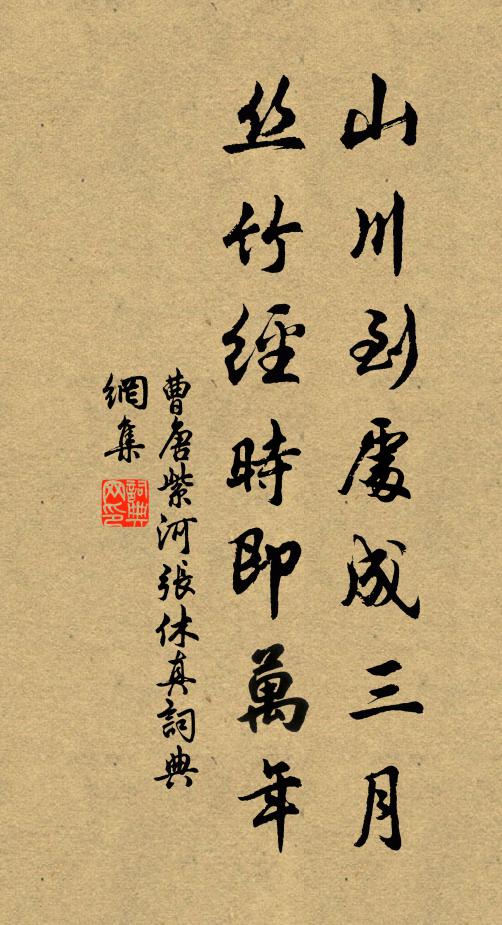 山川到處成三月
丝竹經時即萬年
曹唐紫河張休真詞典
網集
詞典
网印